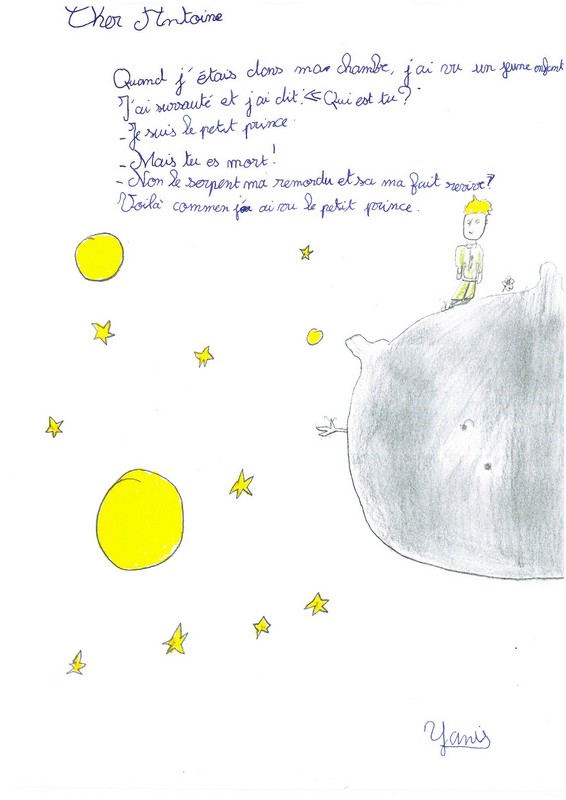 Cher Antoine
Quand j'étais dans ma chambre, j'ai vu un jeune enfant
J'ai sursauté et j'ai dit: « Qui est tu?
- Je suis le petit prince.
- Mais tu es mort!
- Non le serpent ma remordu et sa ma fait revivre?
Voilà commen j'ai vu le petit prince.
Yanis